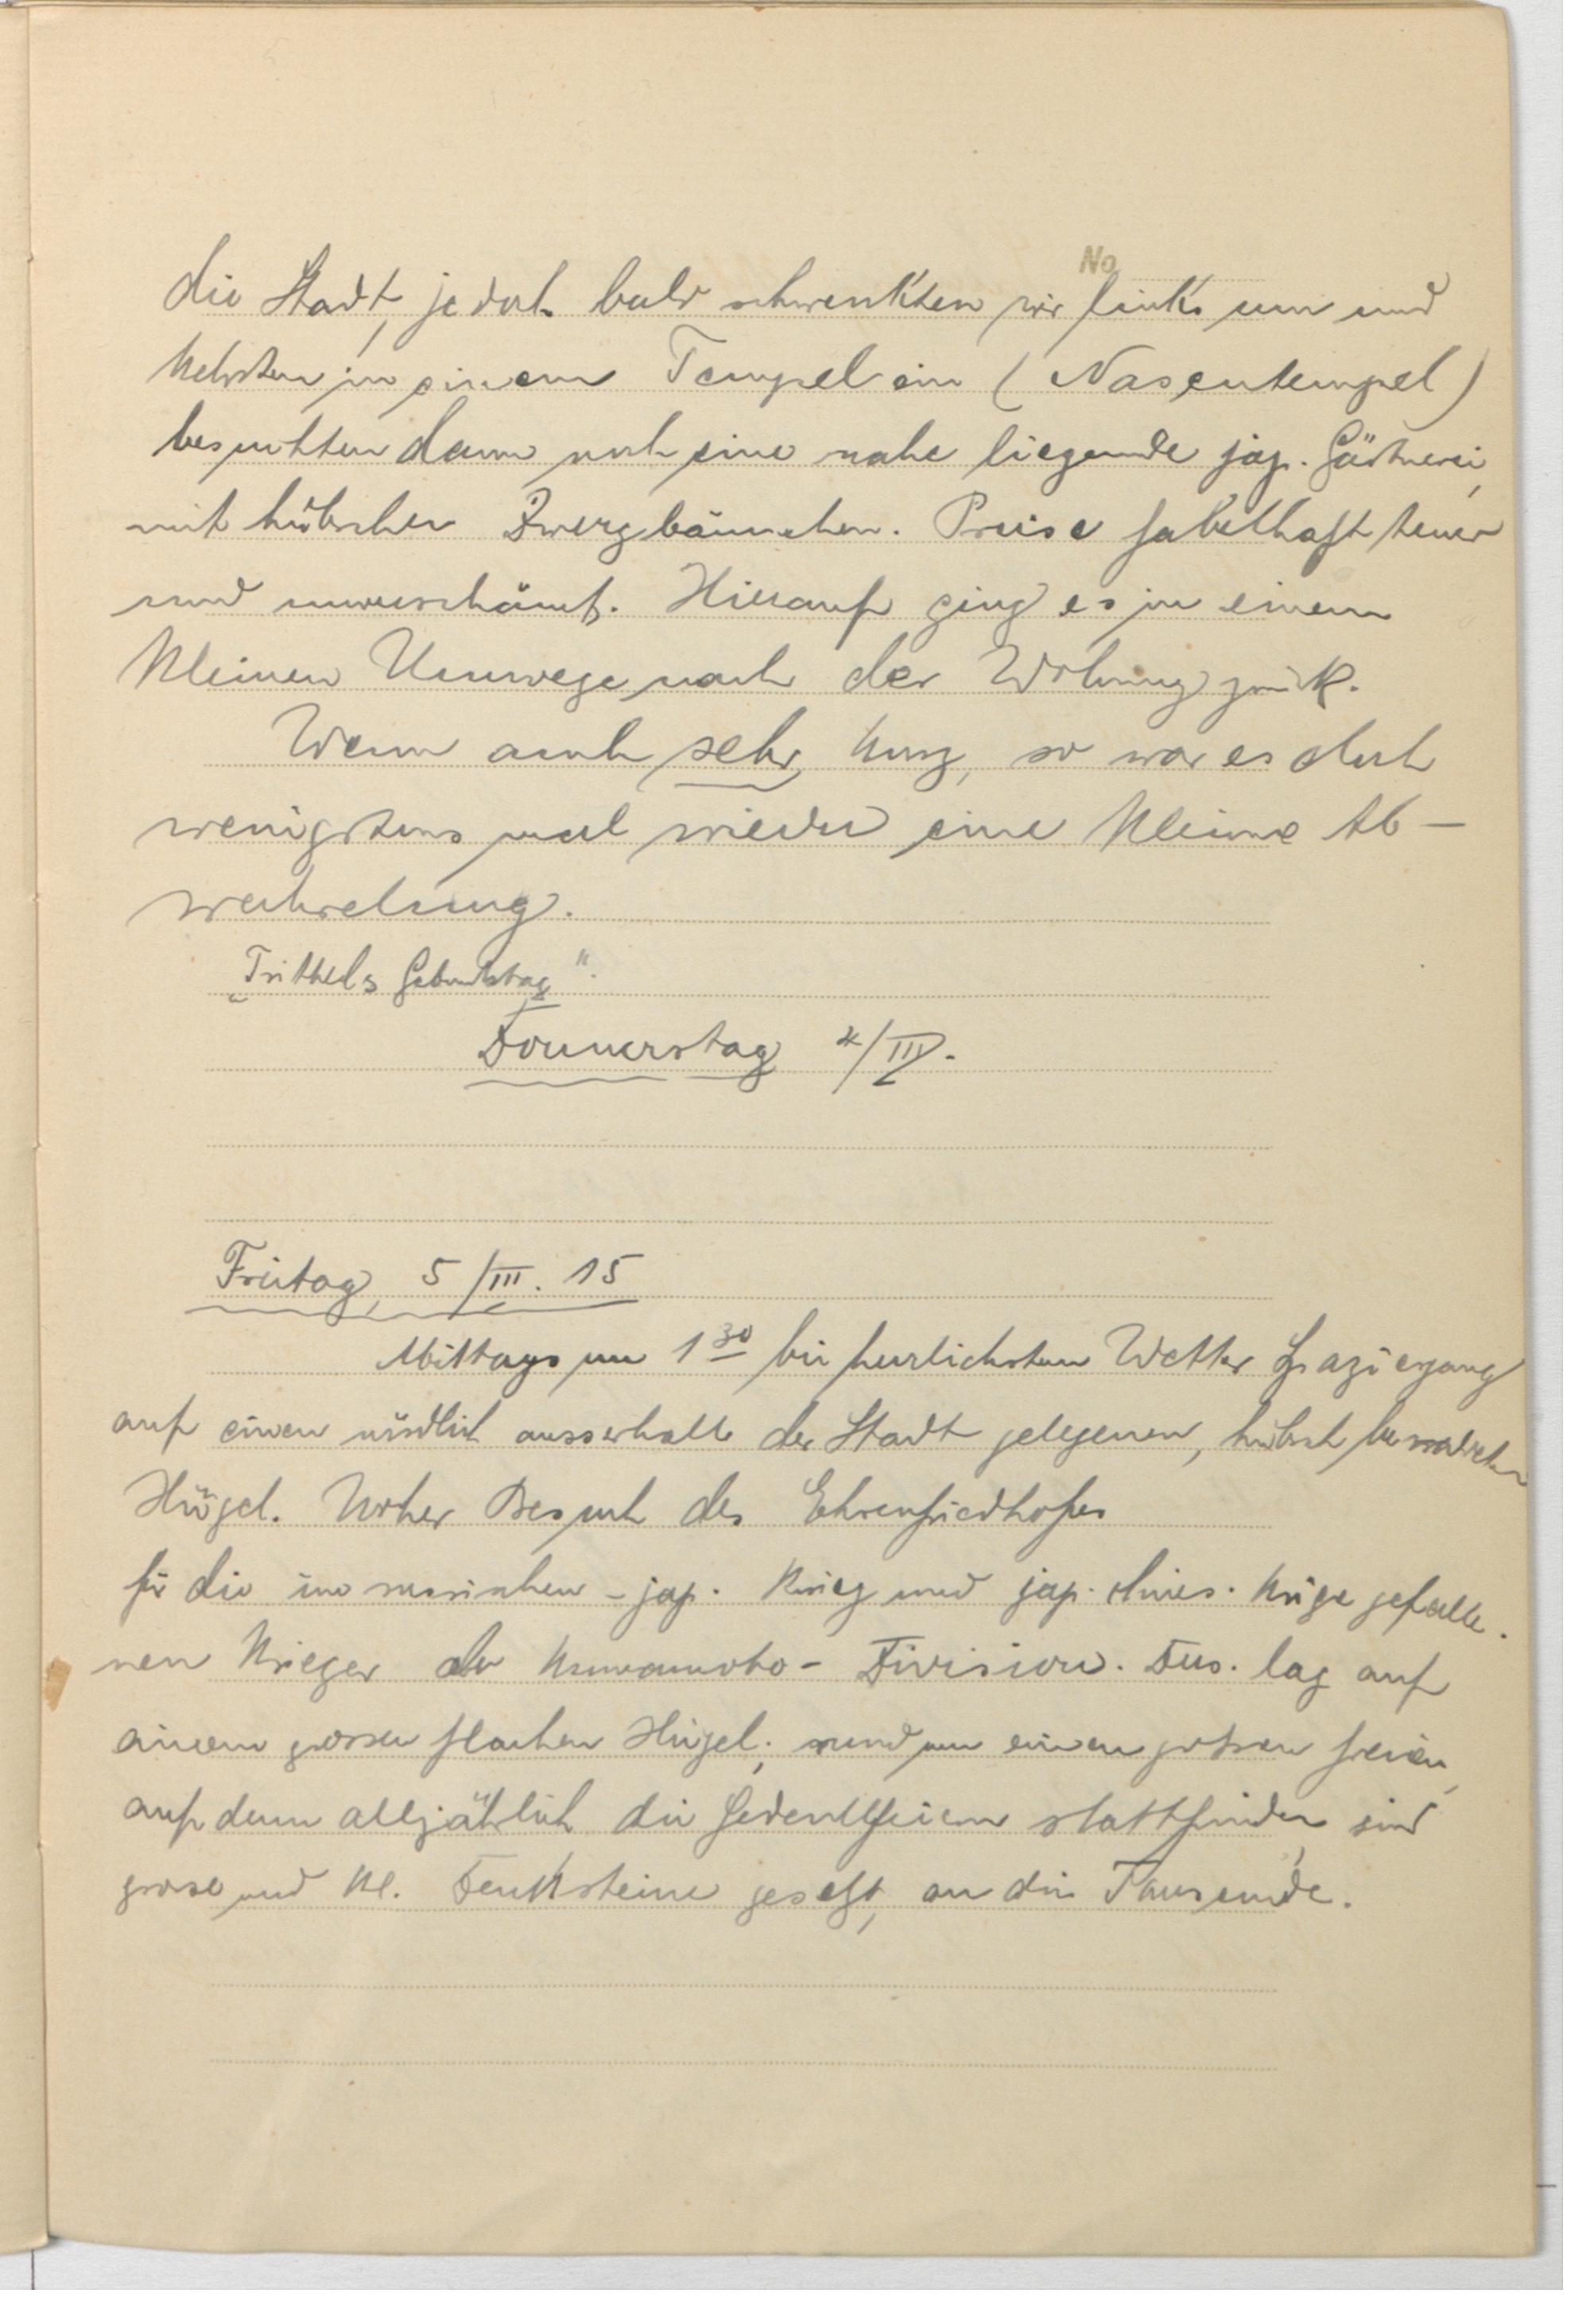 No
die Stadt, jedoch bald schwenkten wir links um und
kehrten in einem Tempel ein (Nasentempel)
besuchten dann noch eine nahe liegende jap. Gärtnerei,
mit hübschen Zwergbäumchen. Preise fabelhaft teuer
und unverschämt. Hierauf ging es in einem
kleinen Umwege nach der Wohnung zurück.
Wenn auch sehr kurz, so war es doch
wenigstens mal wieder eine kleine Ab-
wechselung.
"Trittels Geburtstag".
Donnerstag 4/III.
Freitag 5/III. 15
Mittags um 1 30 bei herrlichstem Wetter Spaziergang
auf einen nördlich ausserhalb der Stadt gelegenen, hübsch bewaldeten
Hügel. Vorher Besuch des Ehrenfriedhofes
für die im russischen-jap. Krieg und jap. chines. Kriege gefalle-
nen Krieger der Kumamoto-Division. Ders. lag auf
einem grossen flachen Hügel; rund um einen grossen freien,
auf dem alljährlich die Gedenkfeiern stattfinden, sind
grose und kl. Denksteine gesetzt, an die Tausende.